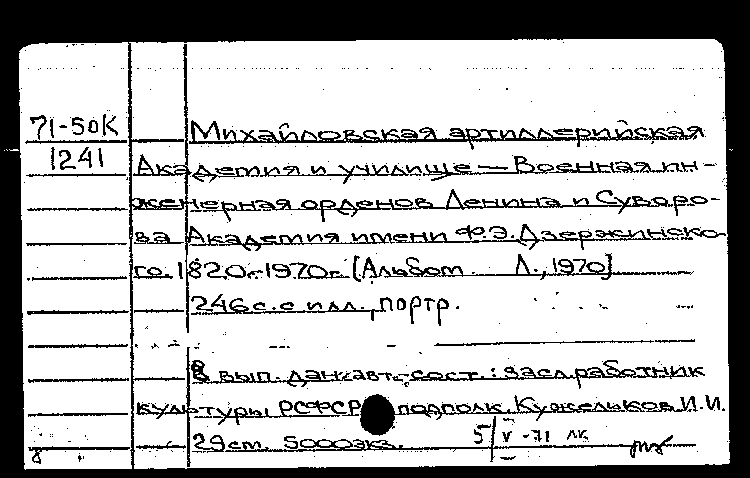 71-50К Михайловская артиллерийская
1241 Академия и училище — Военная ин-
женерная орденов Ленина и Суворо-
ва Академия имени Ф.Э. Дзержинско-
го. 1820г.-1970г. [Альбом Л., 1970]
246 с. с илл., портр.
В вып. дан. авт.-сост.: засл. работник
культуры РСФСР подполк. Кужельков И.И.
29 cm. 5000 экз. 5/V-71 лк
8